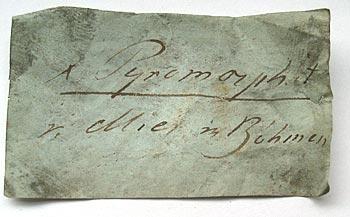 x Pyromorphit
v. Mies in Böhmen